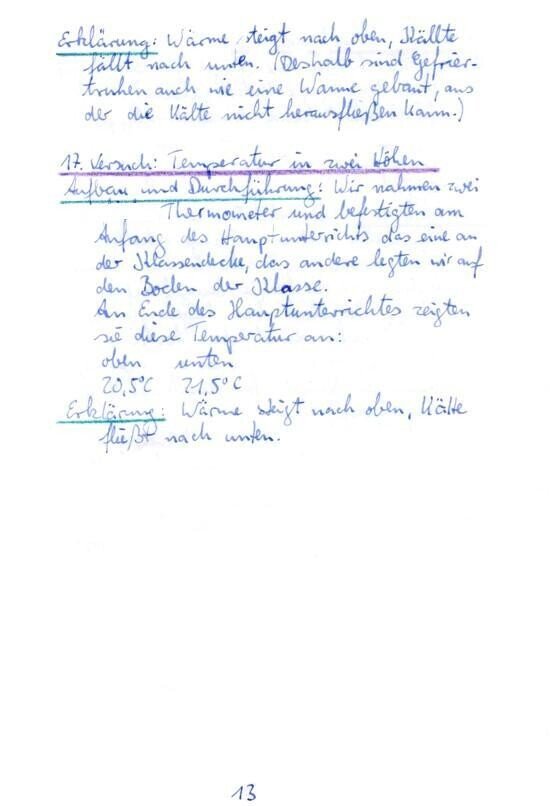 Erklärung: Wärme steigt nach oben, Kälte
fällt nach unten. (Deshalb sind Gefrier-
truhen auch wie eine Wanne gebaut, aus
der die Kälte nicht herausfließen kann.)
17. Versuch: Temperatur in zwei Höhen
Aufbau und Durchführung: Wir nahmen zwei
Thermometer und befestigten am
Anfang des Hauptunterrichts das eine an
der Klassendecke, das andere legten wir auf
den Boden der Klasse.
Am Ende des Hauptunterrichtes zeigten
sie diese Temperatur an:
oben unten
20,5°C 21,5°C
Erklärung: Wärme steigt nach oben, Kälte
fließt nach unten.
13